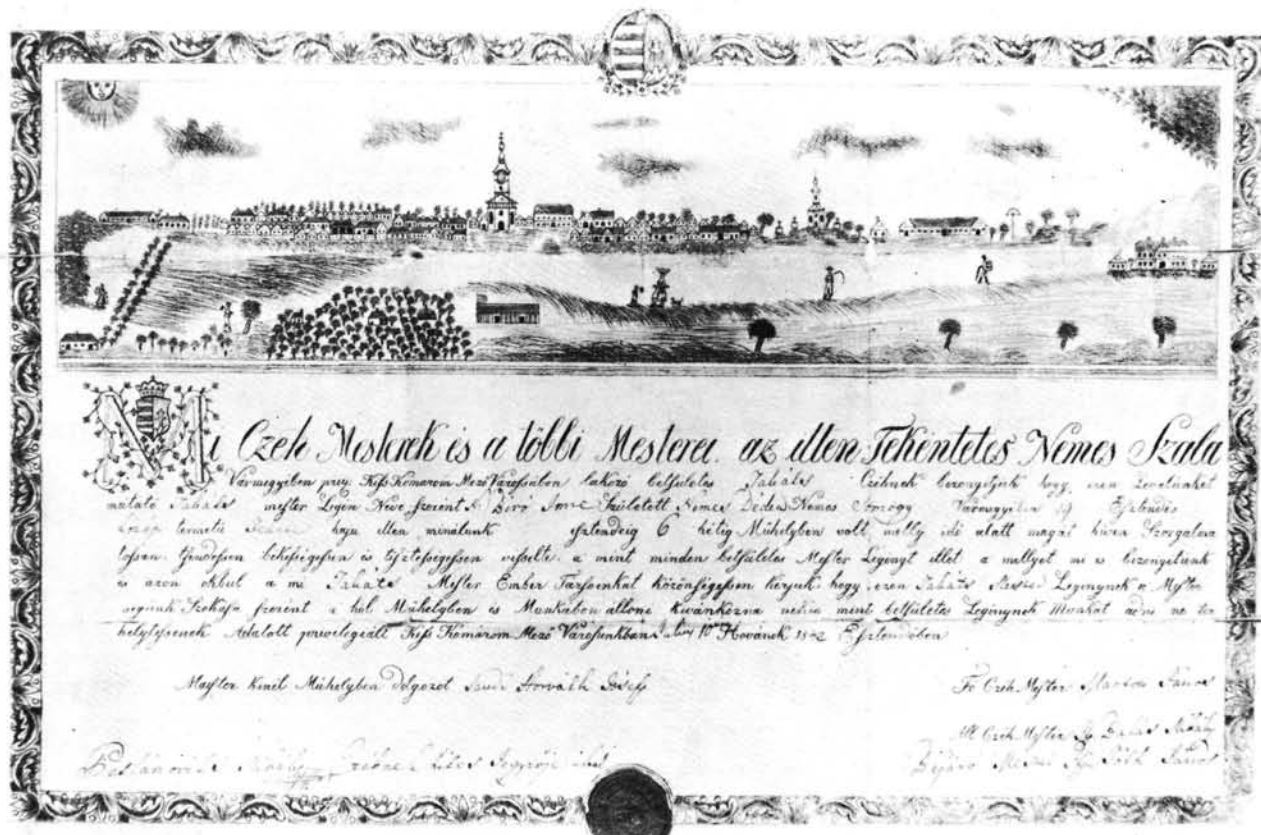 Mi Czéh Mesterek és a többi Mesterei az illen Tekéntetes Nemes Szala
Vármegyében privy: Kiss Komárom Mező Városában lakozó betsületes Takáts Czéhnek bizonyétjuk hogy ezen levelünket
mutató Takáts mester Legén Neve szerént N. Biró Imre Született Nemes Nemes Somogy Vármegyében 19 Esztendős
közép termetű haju illen minálunk esztendeig 6 hétig Mühelyben volt, melly idő alatt magát hiven Szorgalma
tossan, tsendessen békességessen és tisztességessen visselte, a mint minden betsületes Mester Legényt illet a mellyet mi is bizonyétunk
és azon okbul a mi Takáts Mester Ember Társoinkat közönségessen kérjük hogy ezen Takáts Legénynek a Mester
ségünk Szokása szerént a hol Mühelyben és Munkában állani kivánkozna mint betsületes Legénynek Munkát adni ne ter
heltessenek Adatott privilegiált Kiss Komárom Mező Városunkban July 10 Hovának 1842 Esztendőben
Mester kinél Mühelyben dolgozot Horváth Jósef
Fő Czéh Mester János
All Czéh Mester Mihály
Bejáró Mester Tóth János